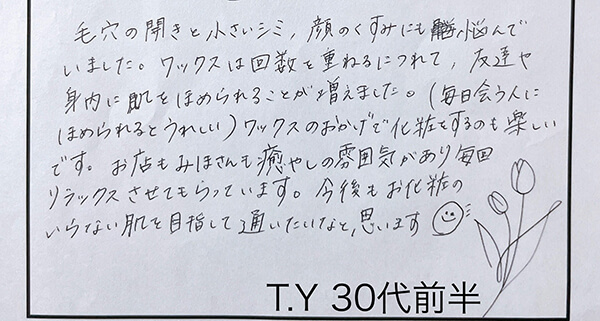 毛穴の開きと小さいシミ、顔のくすみにも悩んで
いました。ワックスは回数を重ねるにつれて、友達や
身内に肌をほめられることが増えました。(毎日会う人に
ほめられるとうれしい)ワックスのおかげで化粧をするのも楽しい
です。お店もみほさんも癒やしの雰囲気があり毎回
リラックスさせてもらっています。今後もお化粧の
いらない肌を目指して通いたいなと、思います
T.Y 30代前半